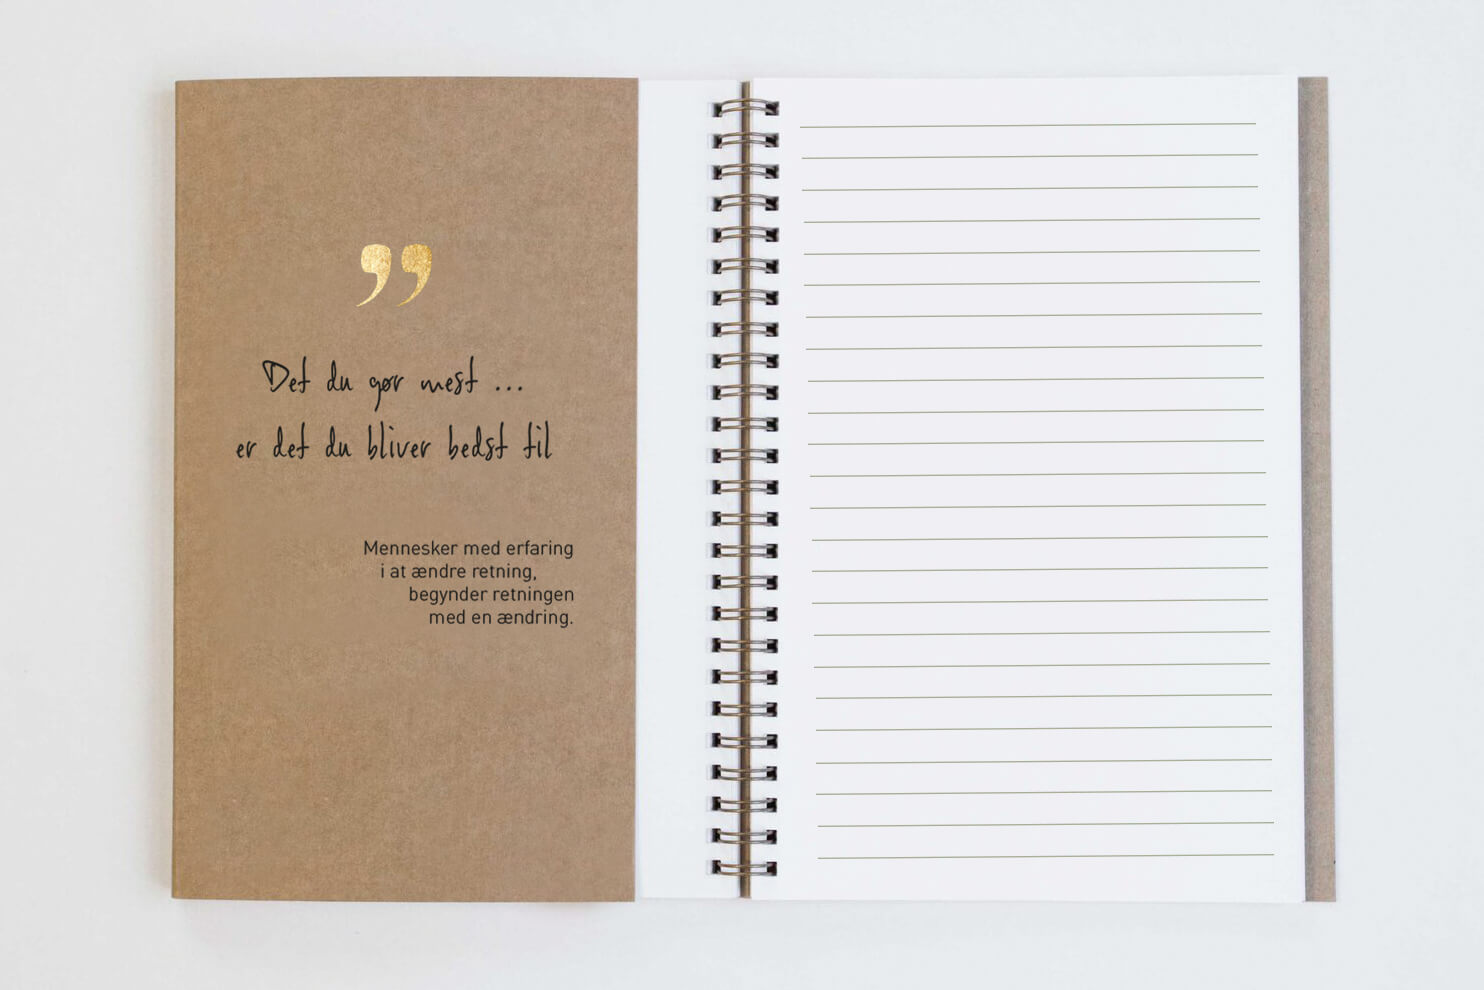 ”
Det du gør mest ...
er det du bliver bedst til
Mennesker med erfaring
i at ændre retning,
begynder retningen
med en ændring.